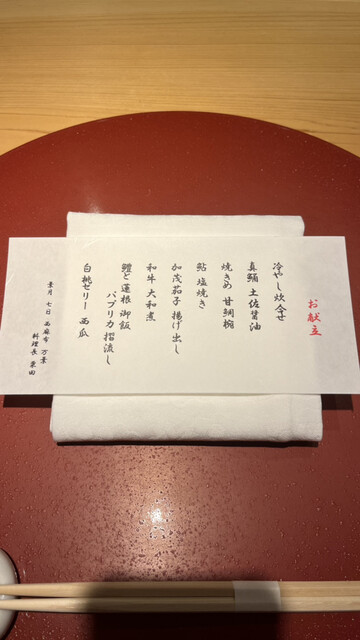 お献立
冷やし炊合せ
真鯛 土佐醤油
焼きめ 甘鯛椀
鮎 塩焼き
加茂茄子 揚げ出し
和牛 大和煮
鱧と蓮根 御飯
パプリカ 摺流し
白桃ゼリー 西瓜
葉月 七日 西麻布
料理長 栗田